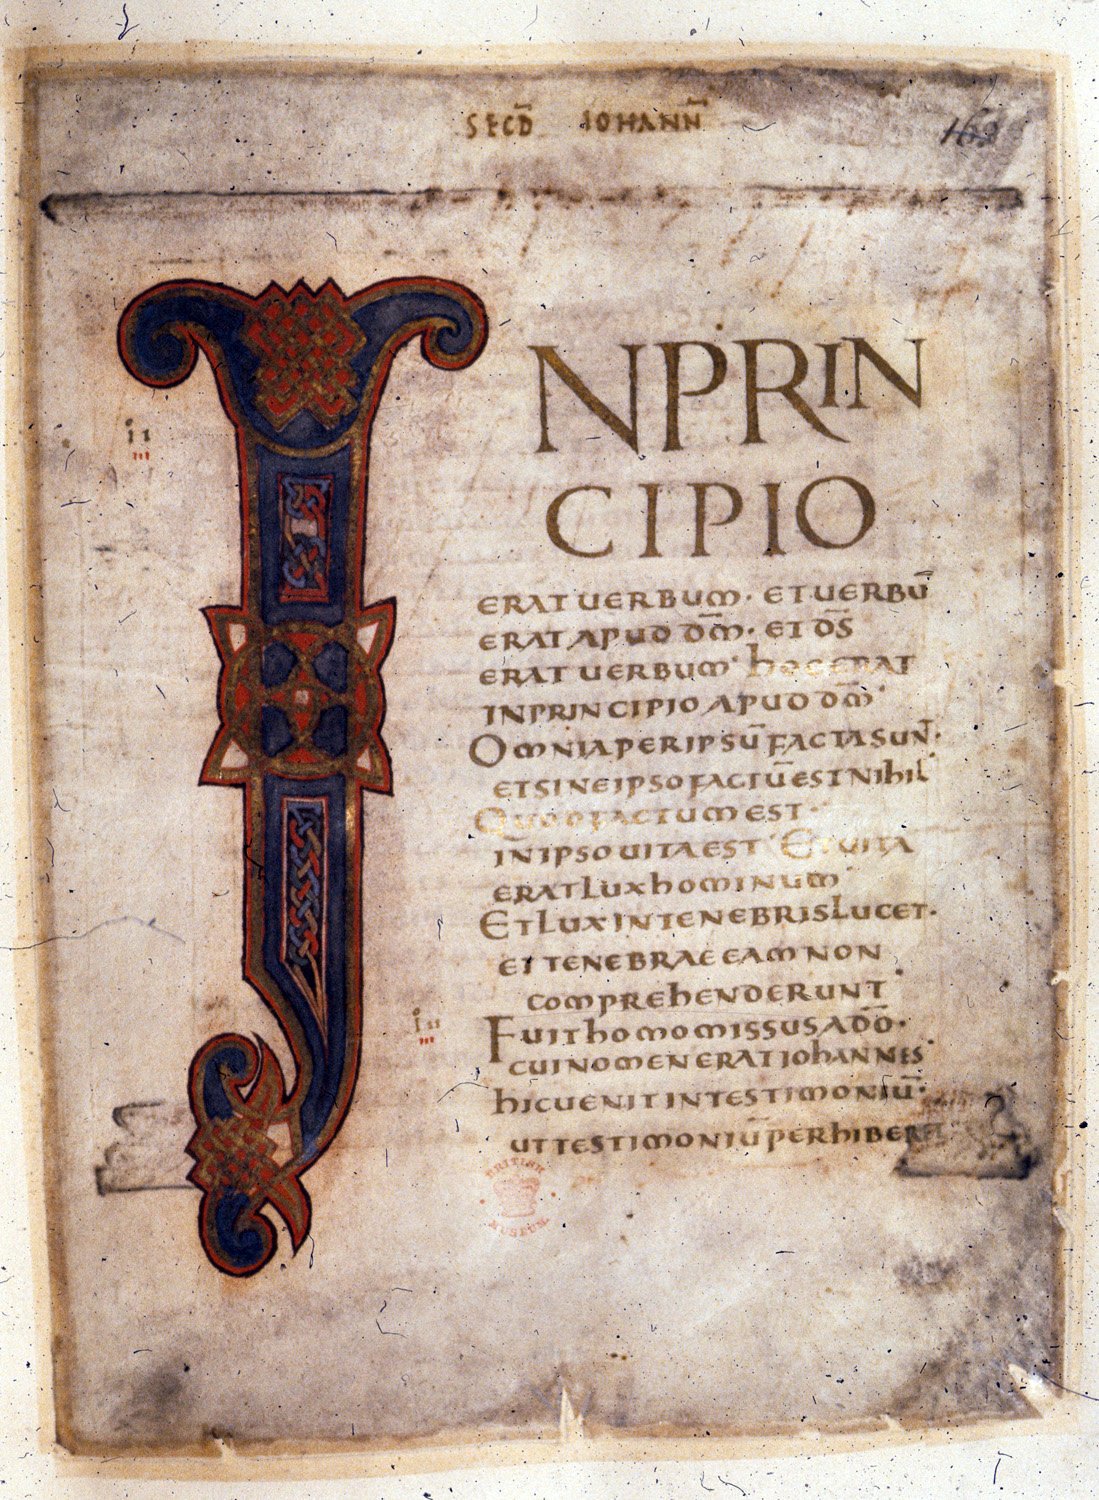 SECD̄ IOHANN̄
162
INPRIN
CIPIO
ERAT UERBUM · ET UERBŪ
ERAT APUD DM̄ · ET DS̄
ERAT UERBUM · hOC ERAT
IN PRINCIPIO APUD DM̄
OMNIA PER IPSŪ FACTA SUNT ·
ET SINE IPSO FACTŪ EST NIhIL
QUOD FACTUM EST ·
IN IPSO UITA EST ET UITA
ERAT LUX hOMINUM
ET LUX IN TENEBRIS LUCET ·
ET TENEBRAE EAM NON
COMPREhENDERUNT
FUIT hOMO MISSUS A DŌ ·
CUI NOMEN ERAT IOhANNES
hIC UENIT IN TESTIMONIŪ ·
UT TESTIMONIŪ PERhIBERET
BRITISH
MUSEUM